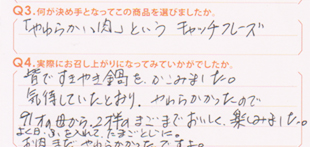 Q3.何が決め手となってこの商品を選びましたか。
「やわらかい肉」という キャッチフレーズ
Q4.実際にお召し上がりになってみていかがでしたか。
皆ですきやき鍋を、かこみました。
気待していたとおり、やわらかかったので
91才の母から、2才のまごまでおいしく、楽しみました。
よく日、ふを入れて、たまごとじに。
お肉まだやわらかかったですよ。